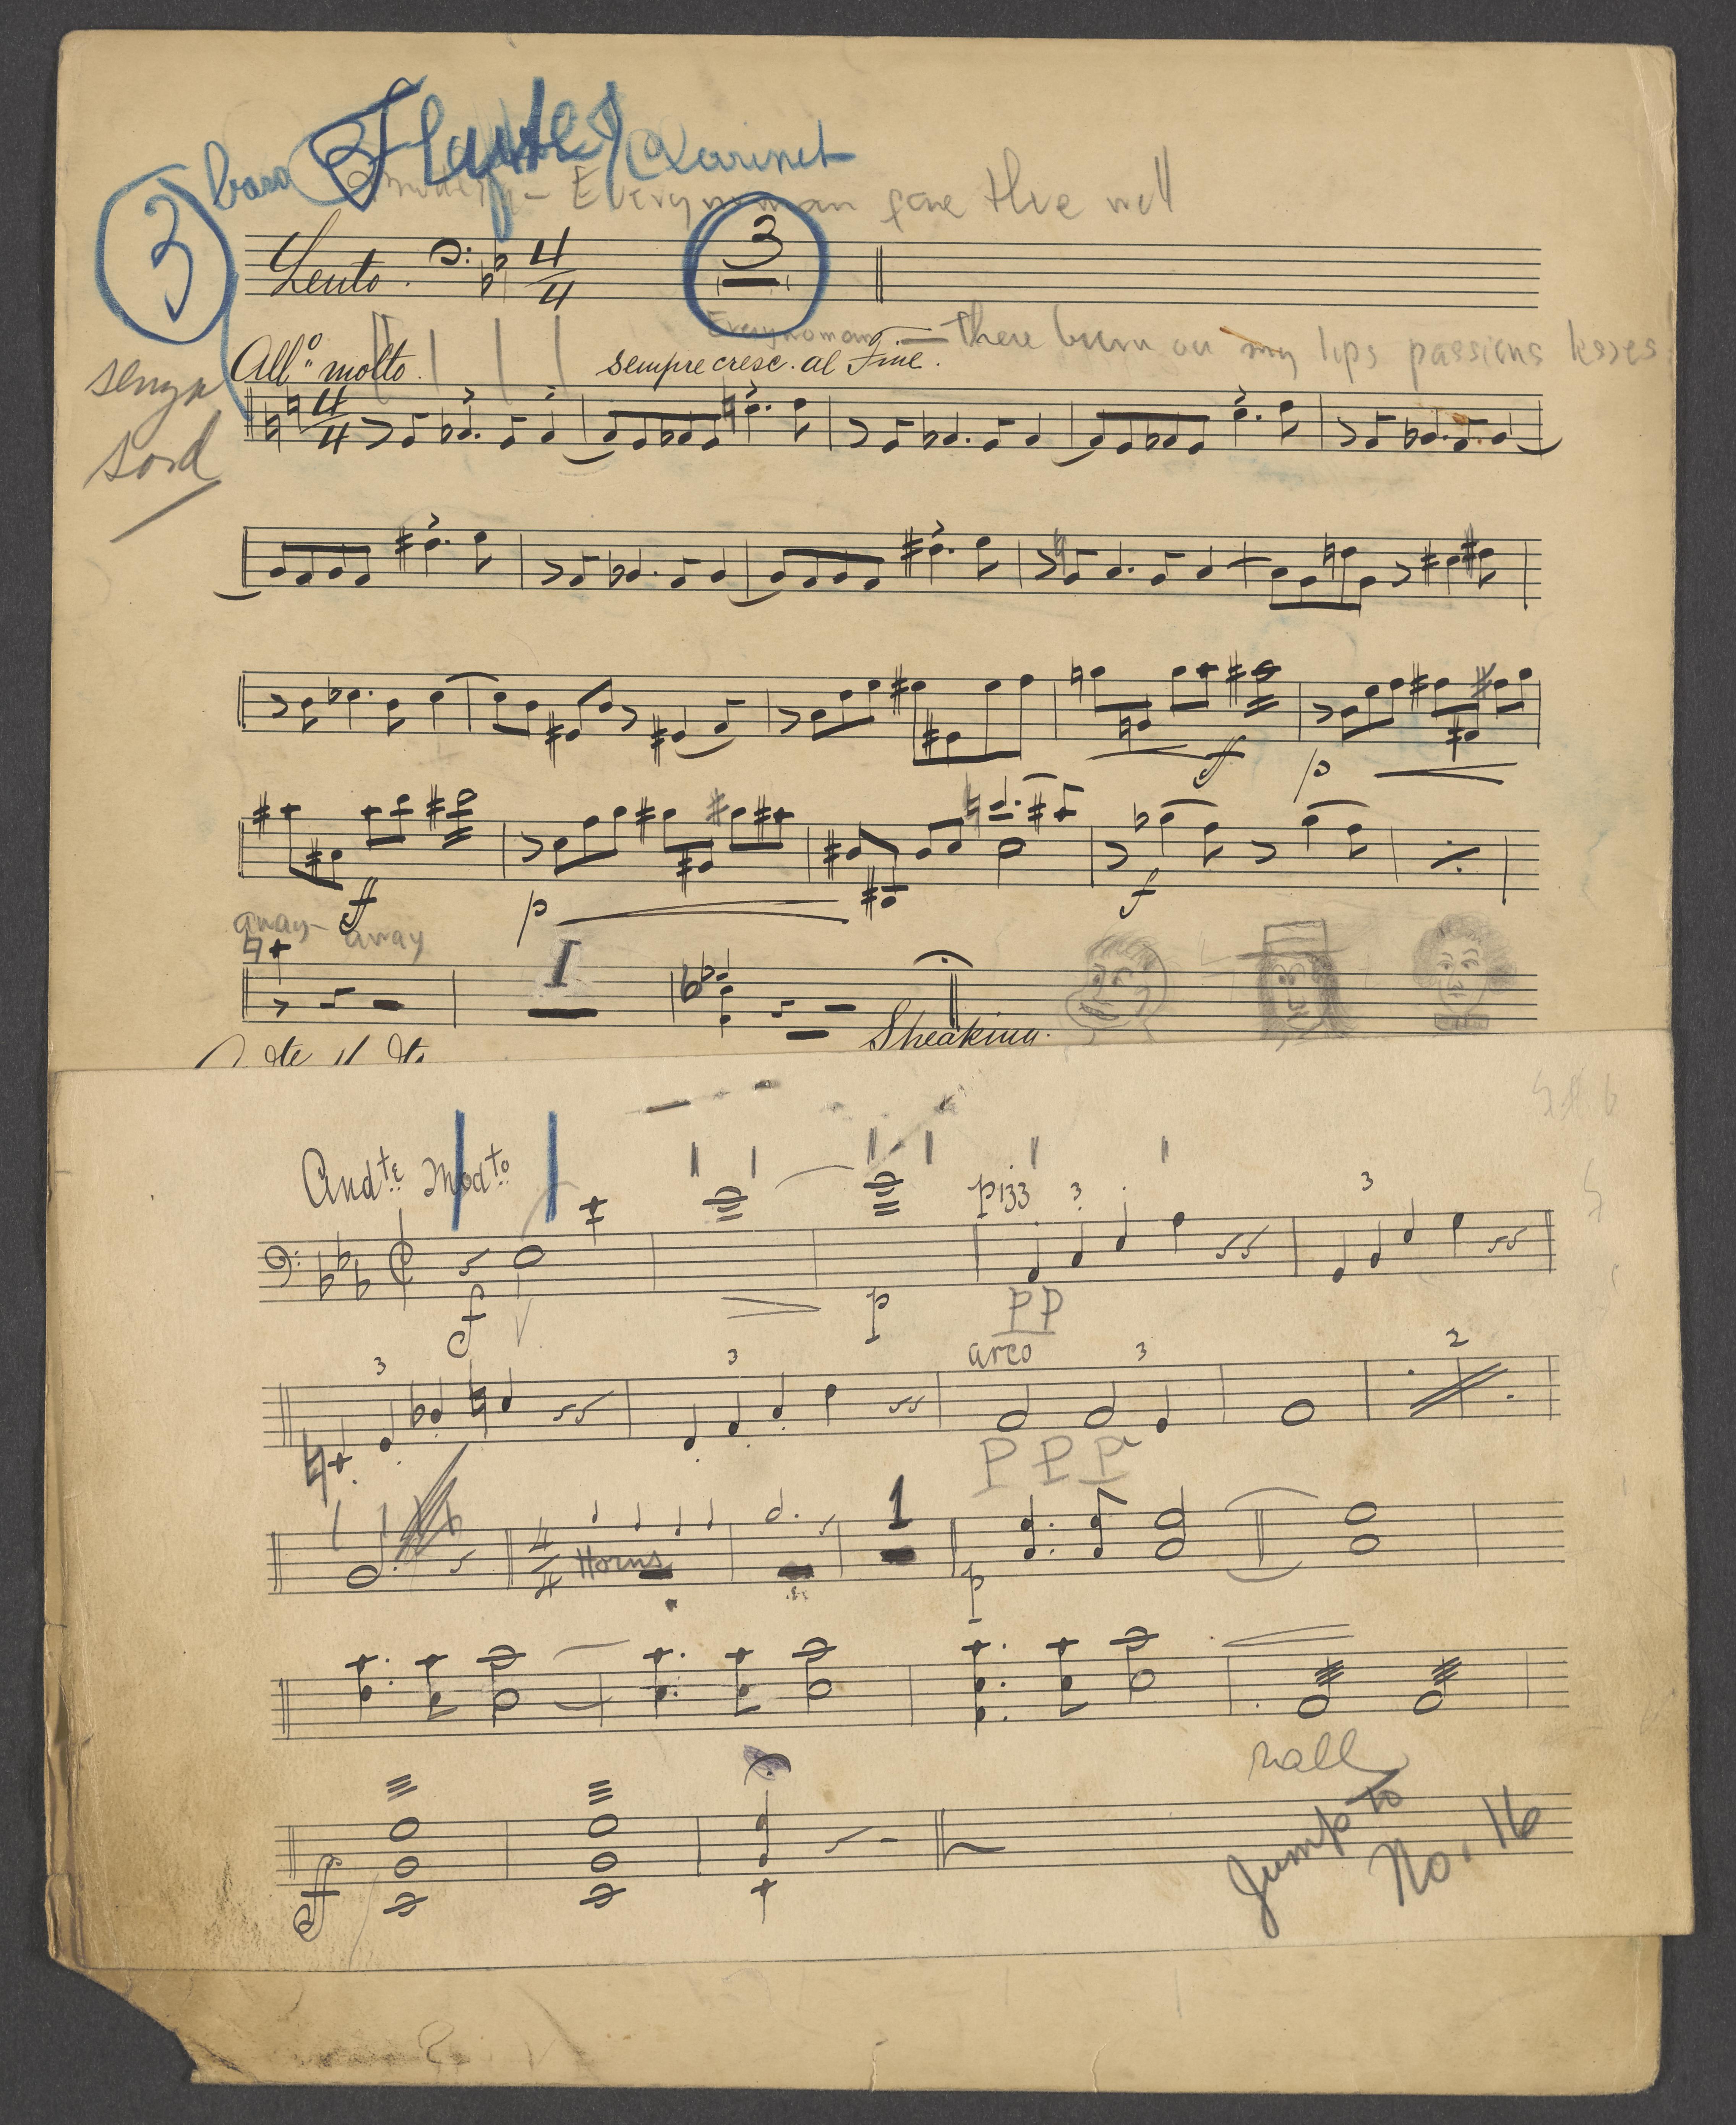 bass Flute / Clarinet
Modesty - Everywoman fare thee well
3
Lento. 4/4 3
Everywoman - there burn on my lips passions kisses
senza
sord
All° molto. sempre cresc. al Fine.
4/4
ff p
ff p f
away - away
1
Speaking.
Andte Modto
pizz 3 3
f p PP
3 3 arco 3 2
PPP
4/4 Horns 1
p
rall
ff
Jump to
No. 16